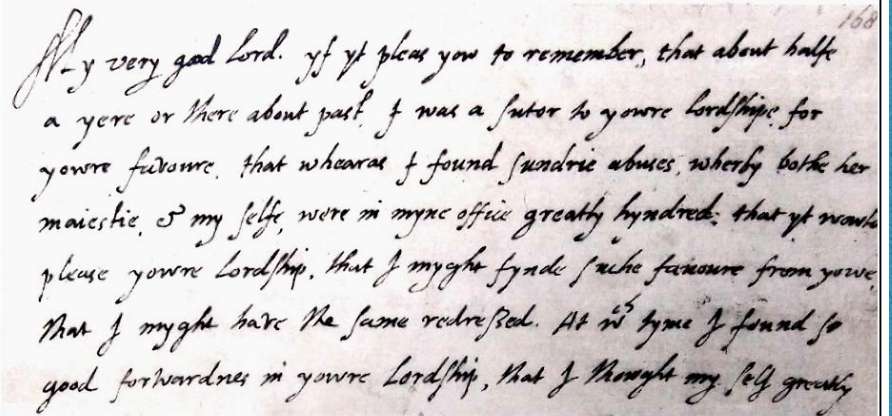 168
My very good Lord. yf yt pleas yow to remember, that about halfe
a yere or there about past, I was a sutor to yowre lordshipe, for
yowre favoure, that whearas I found sundrie abuses, wherby bothe her
maiestie, & my selfe, were in myne office greatly hyndred, that yt wowld
please yowre Lordship, that I myght fynde suche favoure from yowe,
that I myght have the same redressed. At wch tyme I found so
good forwardnes in yowre Lordship, that I thowght my self greatly